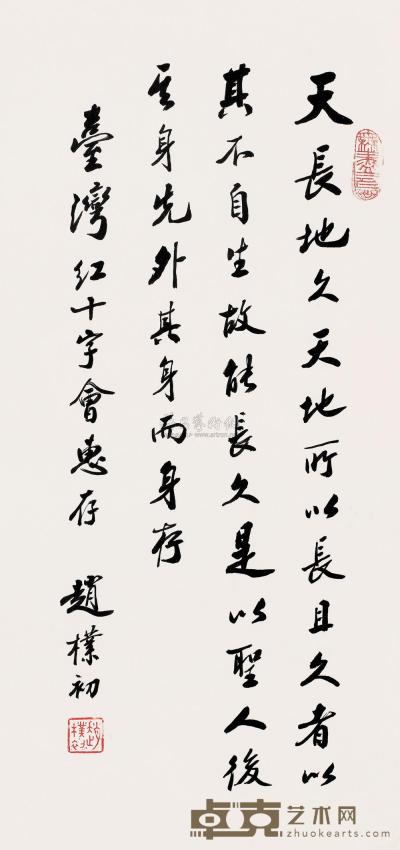 天長地久天地所以長且久者以
其不自生故能長久是以聖人後
其身身先外其身而身存
臺灣紅十字會惠存 趙樸初
卓克艺术网
zhuokearts.com